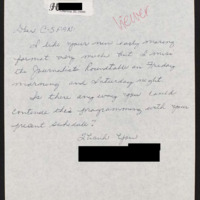 H
Dear C-SPAN:
I like your new early morning
format very much but I miss
the Journalists Roundtable on Friday
morning and Saturday night.
Is there any way you could
continue this programming with your
present schedule?
Thank You